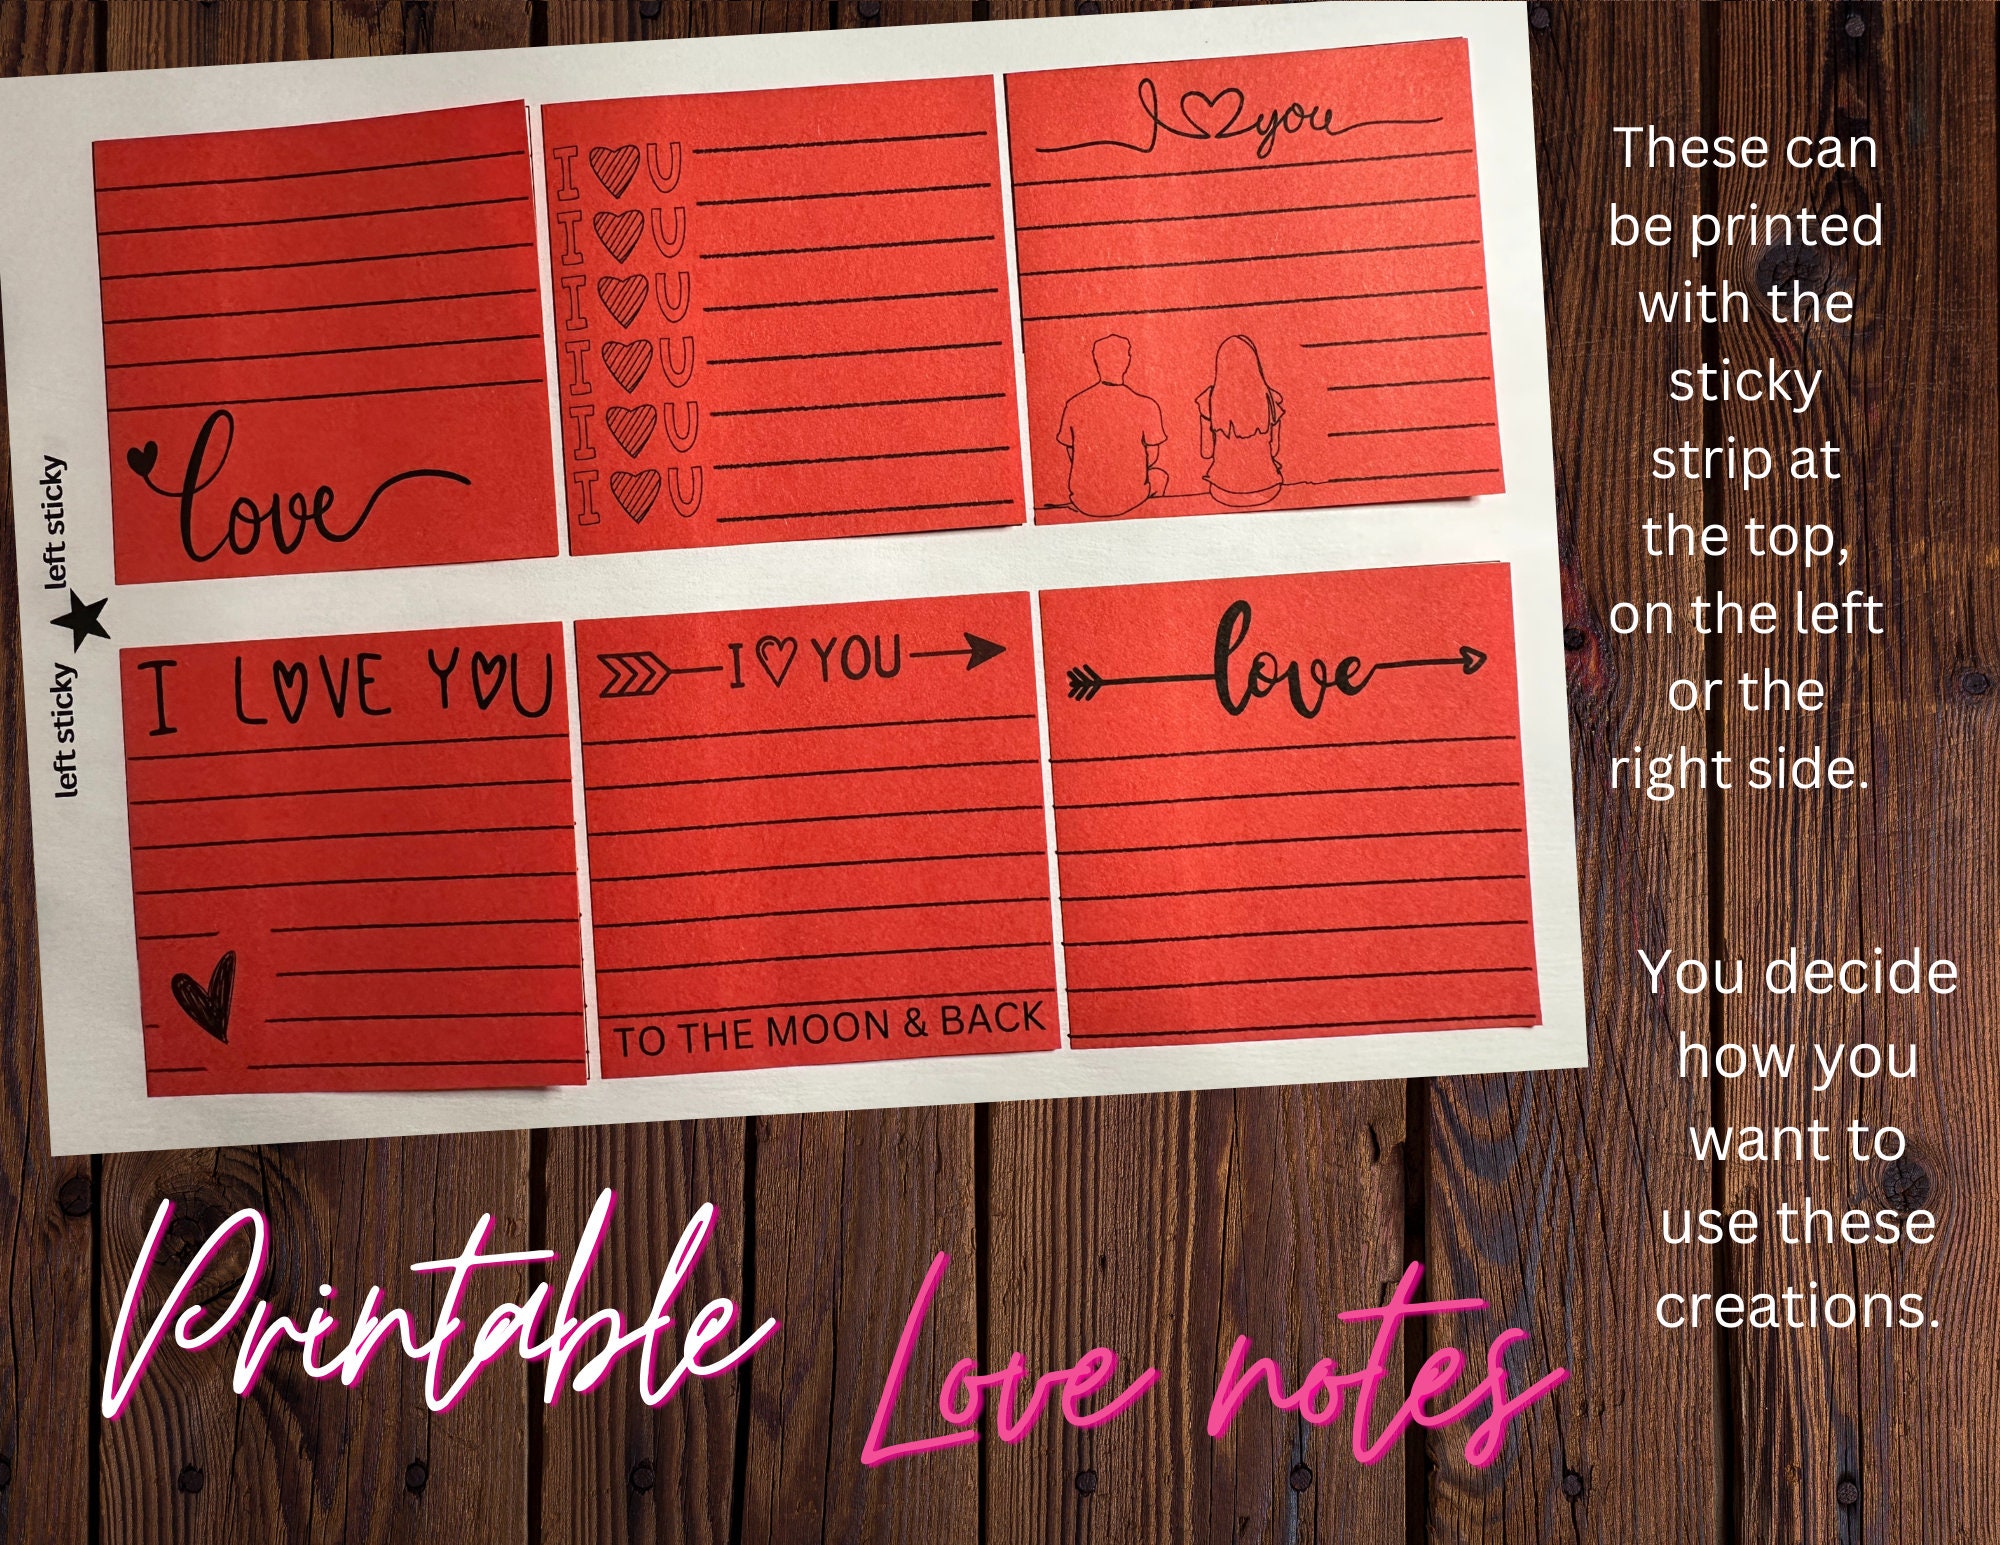 love
I ♥ U
I ♥ U
I ♥ U
I ♥ U
I ♥ U
I ♥ U
I ♥ you
left sticky
left sticky
I LOVE YOU
I ♥ YOU
TO THE MOON & BACK
love
These can
be printed
with the
sticky
strip at
the top,
on the left
or the
right side.
You decide
how you
want to
use these
creations.
Printable
Love notes